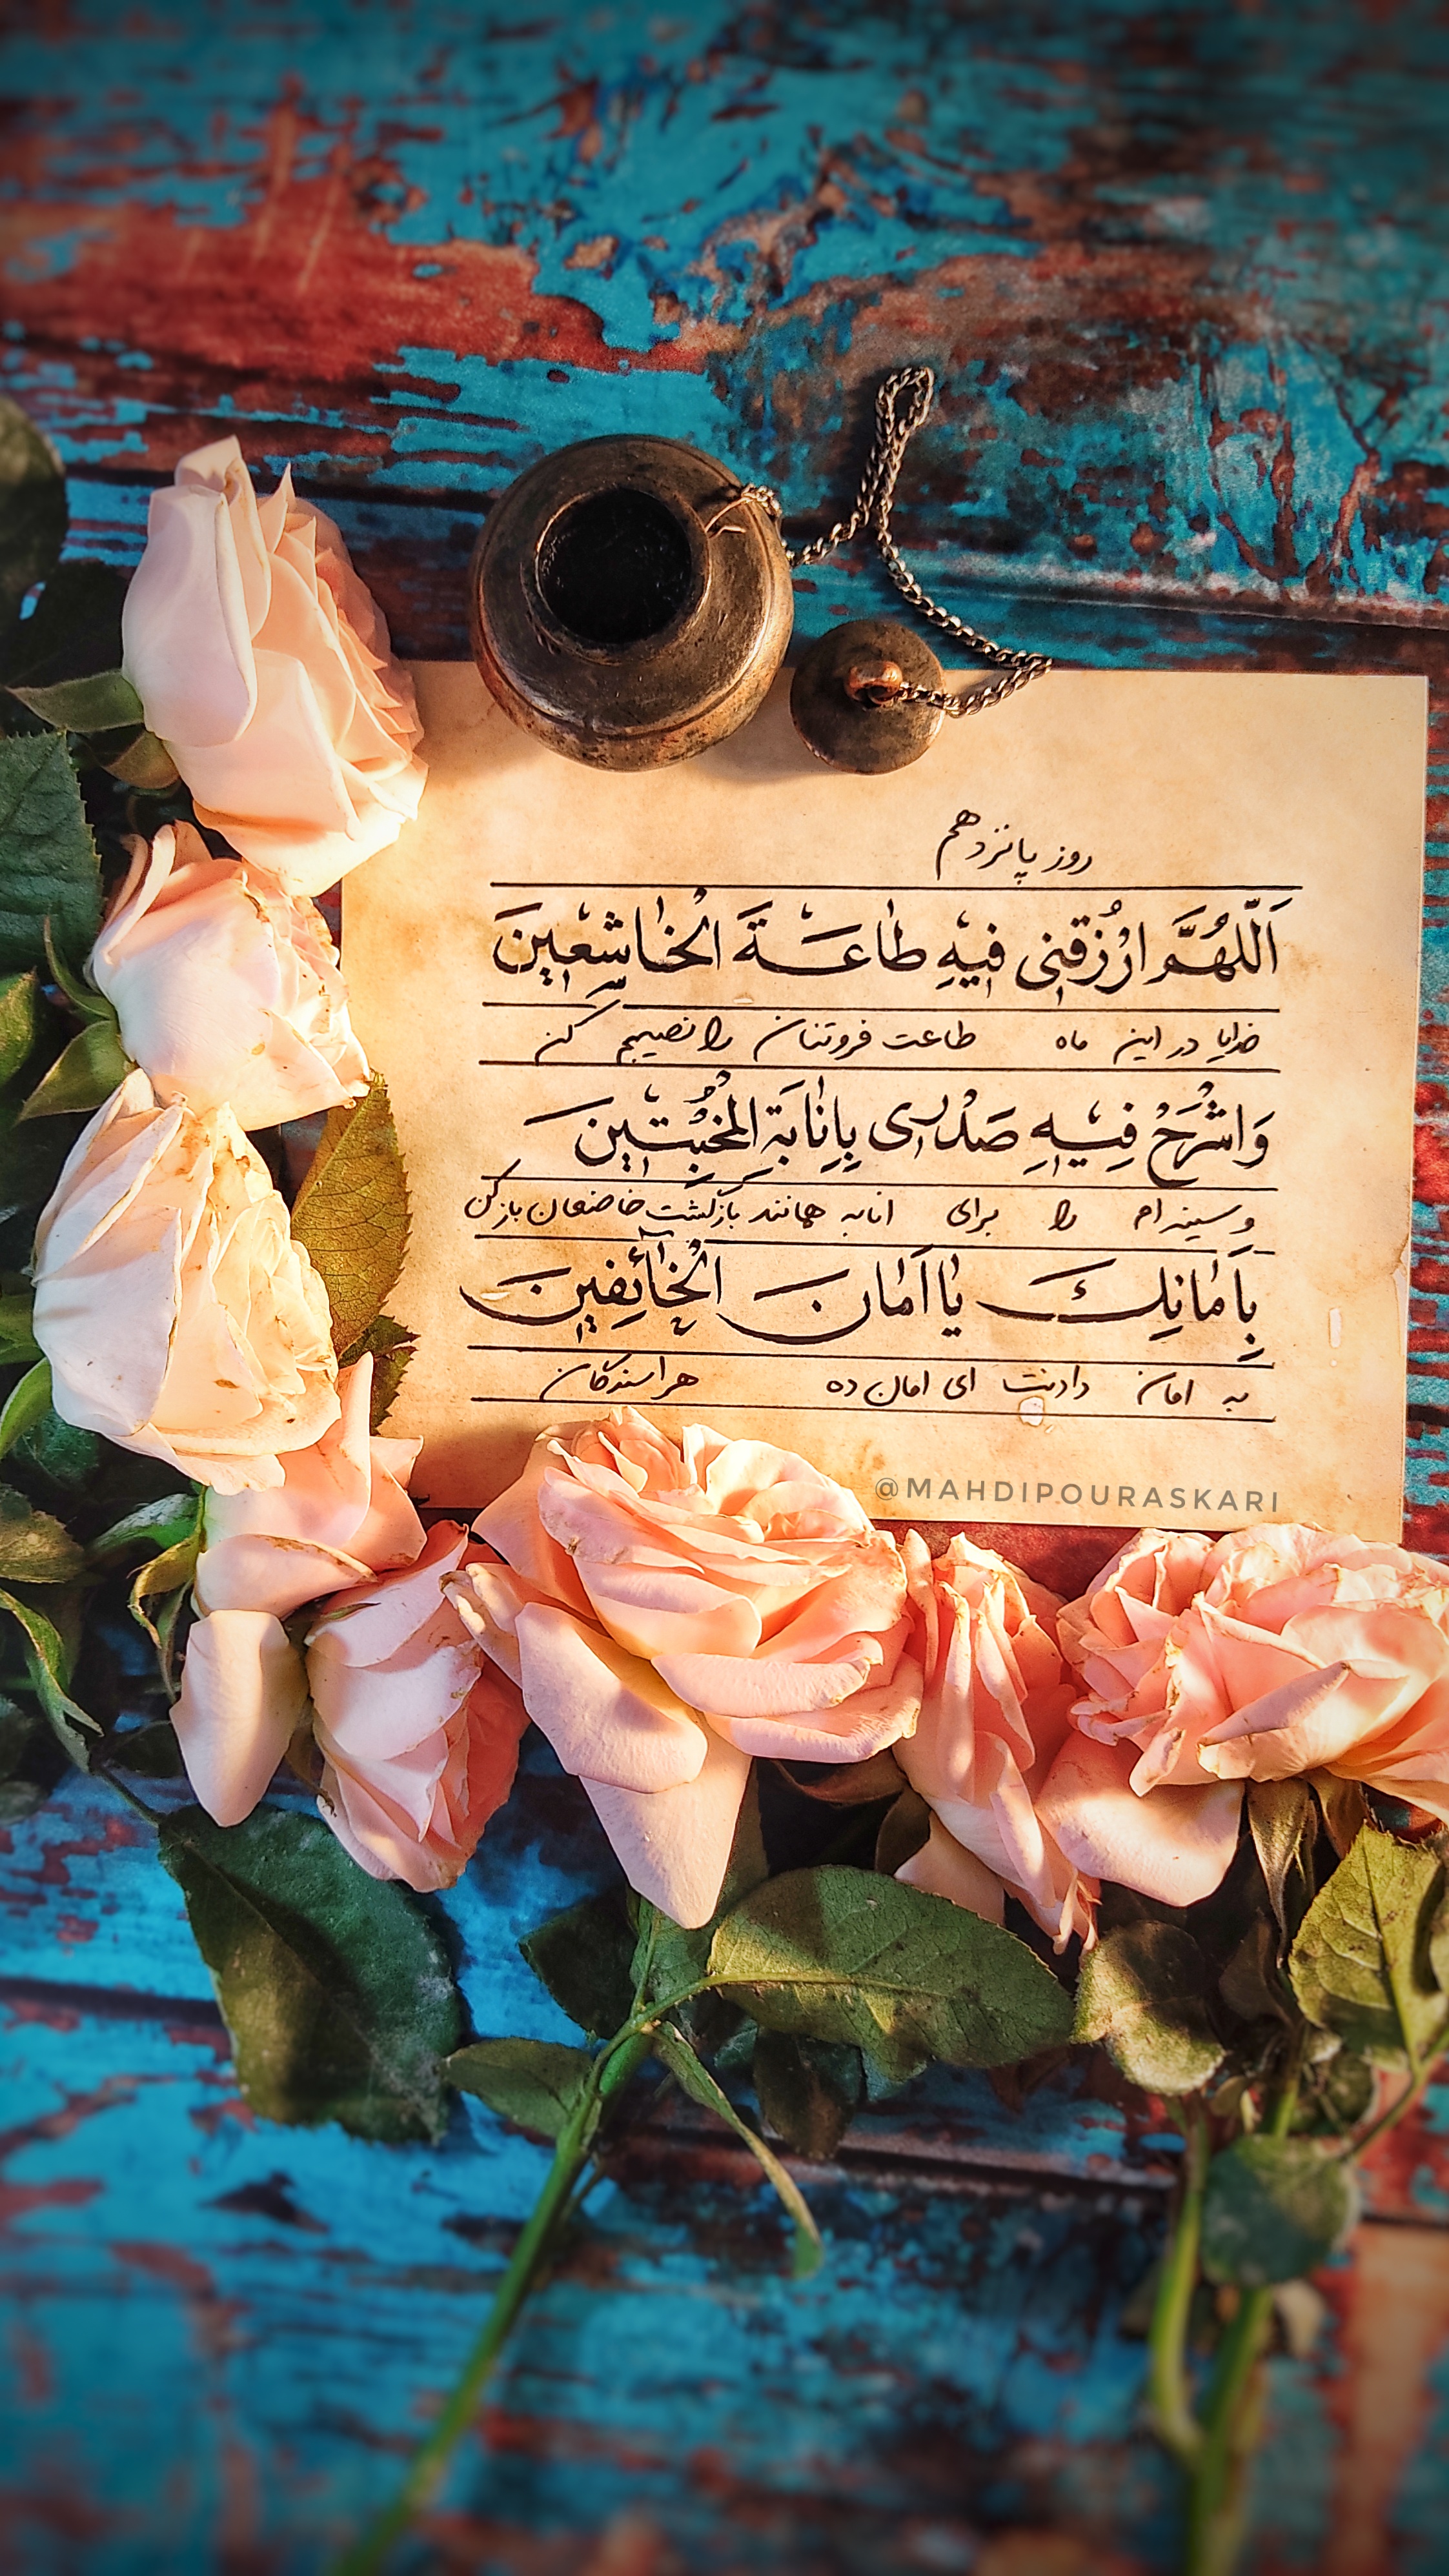 روز پانزدهم
اَللّهُمَّ ارْزُقْنی فیهِ طاعَةَ الْخاشِعینَ
خدایا در این ماه طاعت فروتنان را نصیبم کن
وَاشْرَحْ فیهِ صَدْری بِاِنابَةِ الْمُخْبِتینَ
و سینه‌ام را برای انابه همانند بازگشت خاضعان باز کن
بِاَمانِکَ یا اَمانَ الْخآئِفینَ
به امان دادنت ای امان ده هراسندگان
@MAHDIPOURASKARI